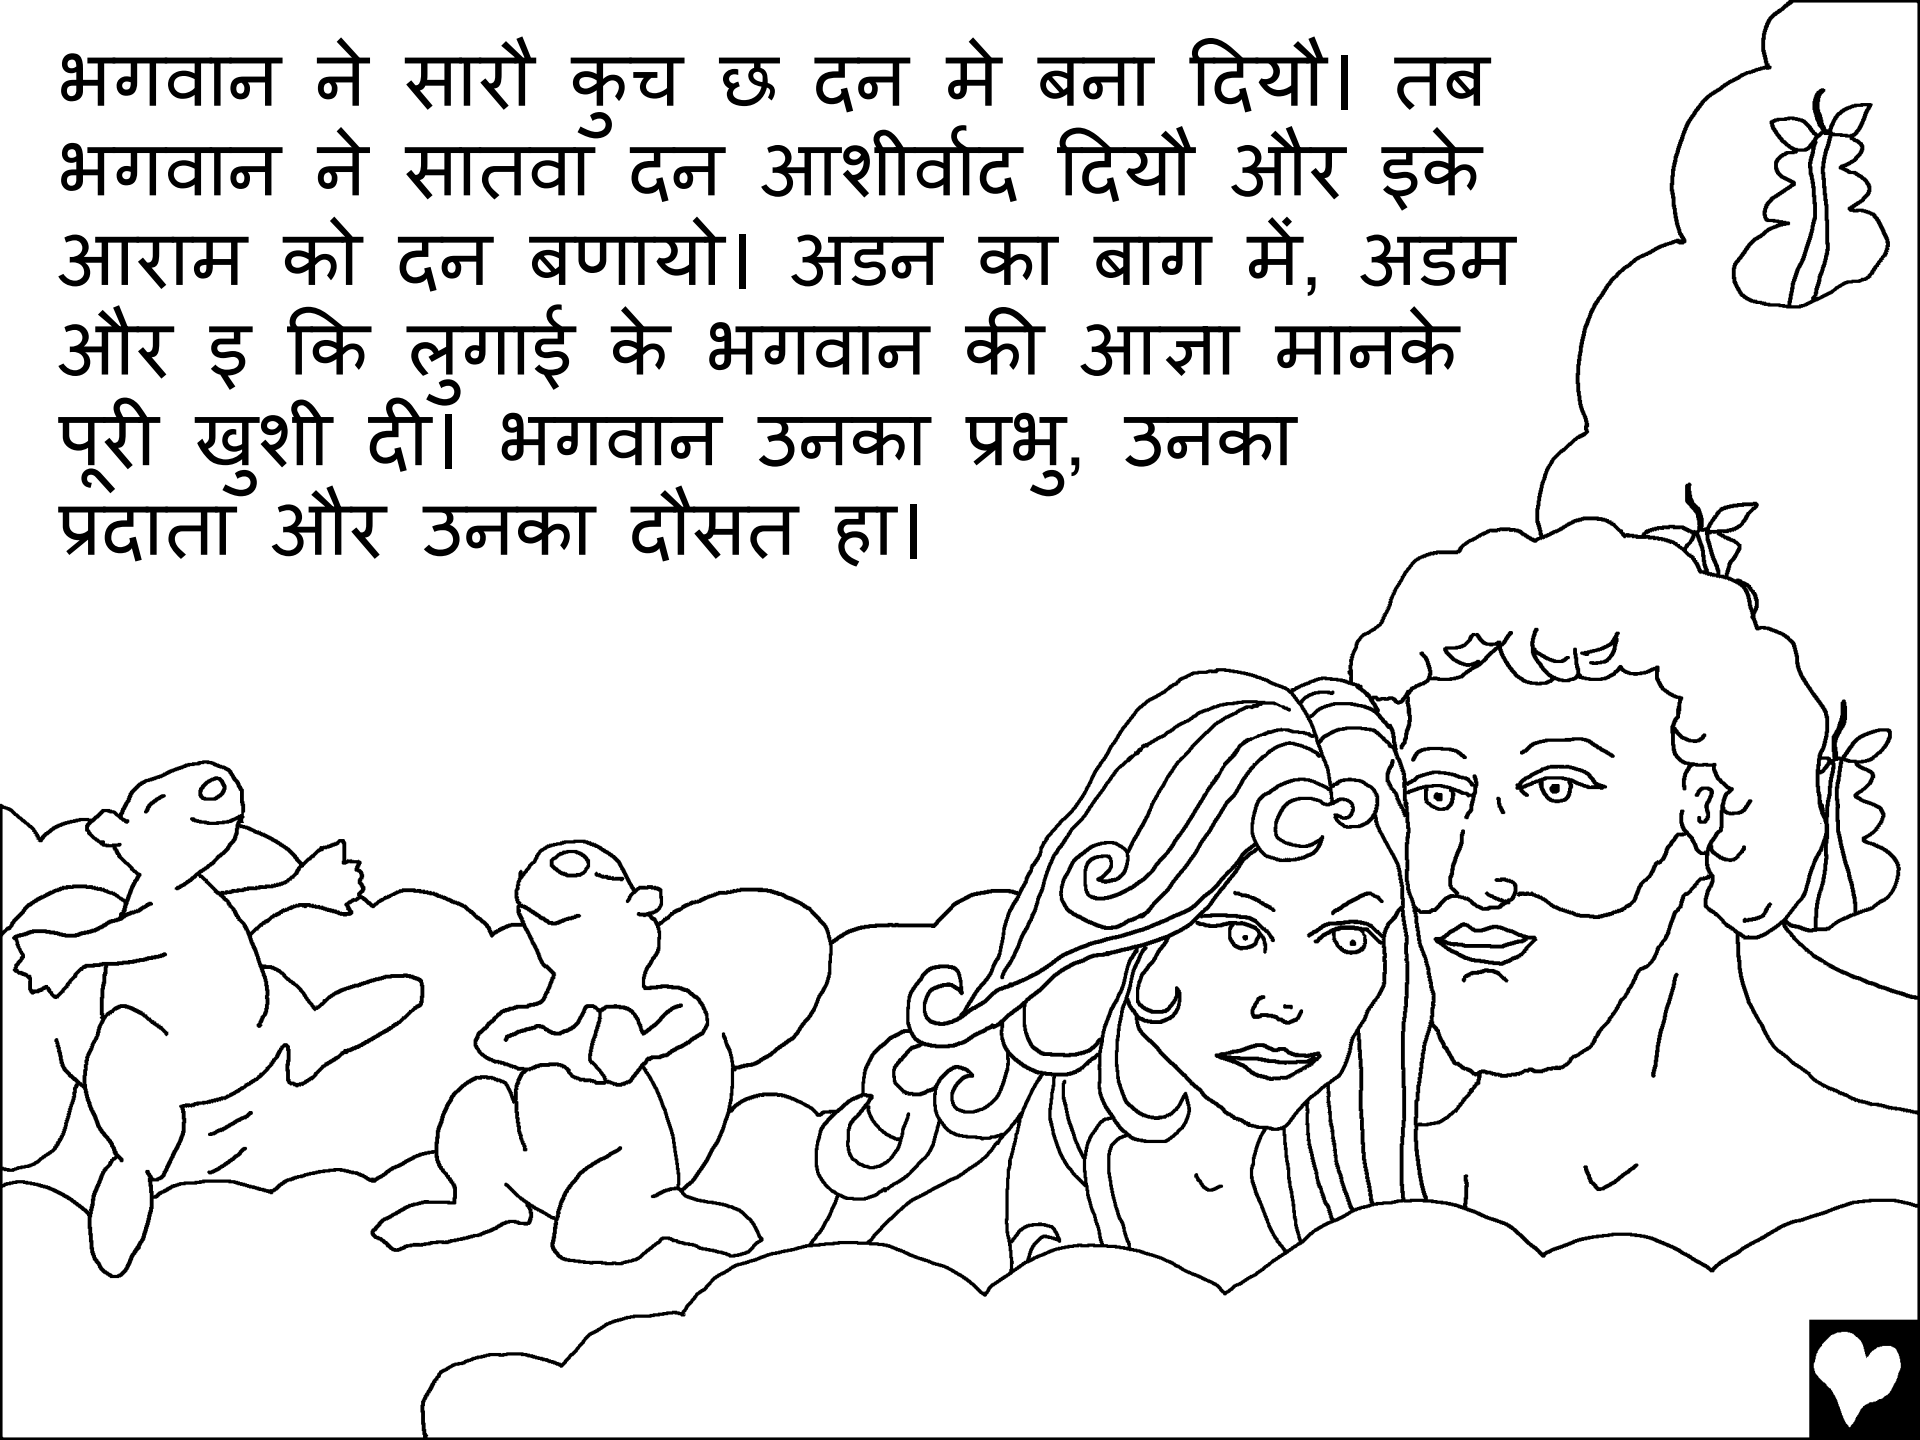 भगवान ने सारौ कुच छ दन मे बना दियौ। तब
भगवान ने सातवा दन आशीर्वाद दियौ और इके
आराम को दन बणायो। अडन का बाग में, अडम
और इ कि लुगाई के भगवान की आज्ञा मानके
पूरी खुशी दी। भगवान उनका प्रभु, उनका
प्रदाता और उनका दौसत हा।